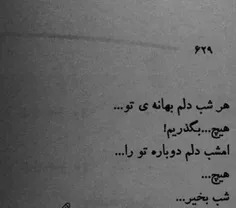 ۶۲۹
هر شب دلم بهانه ی تو...
هیچ...بگذریم!
امشب دلم دوباره تو را...
هیچ...
شب بخیر...